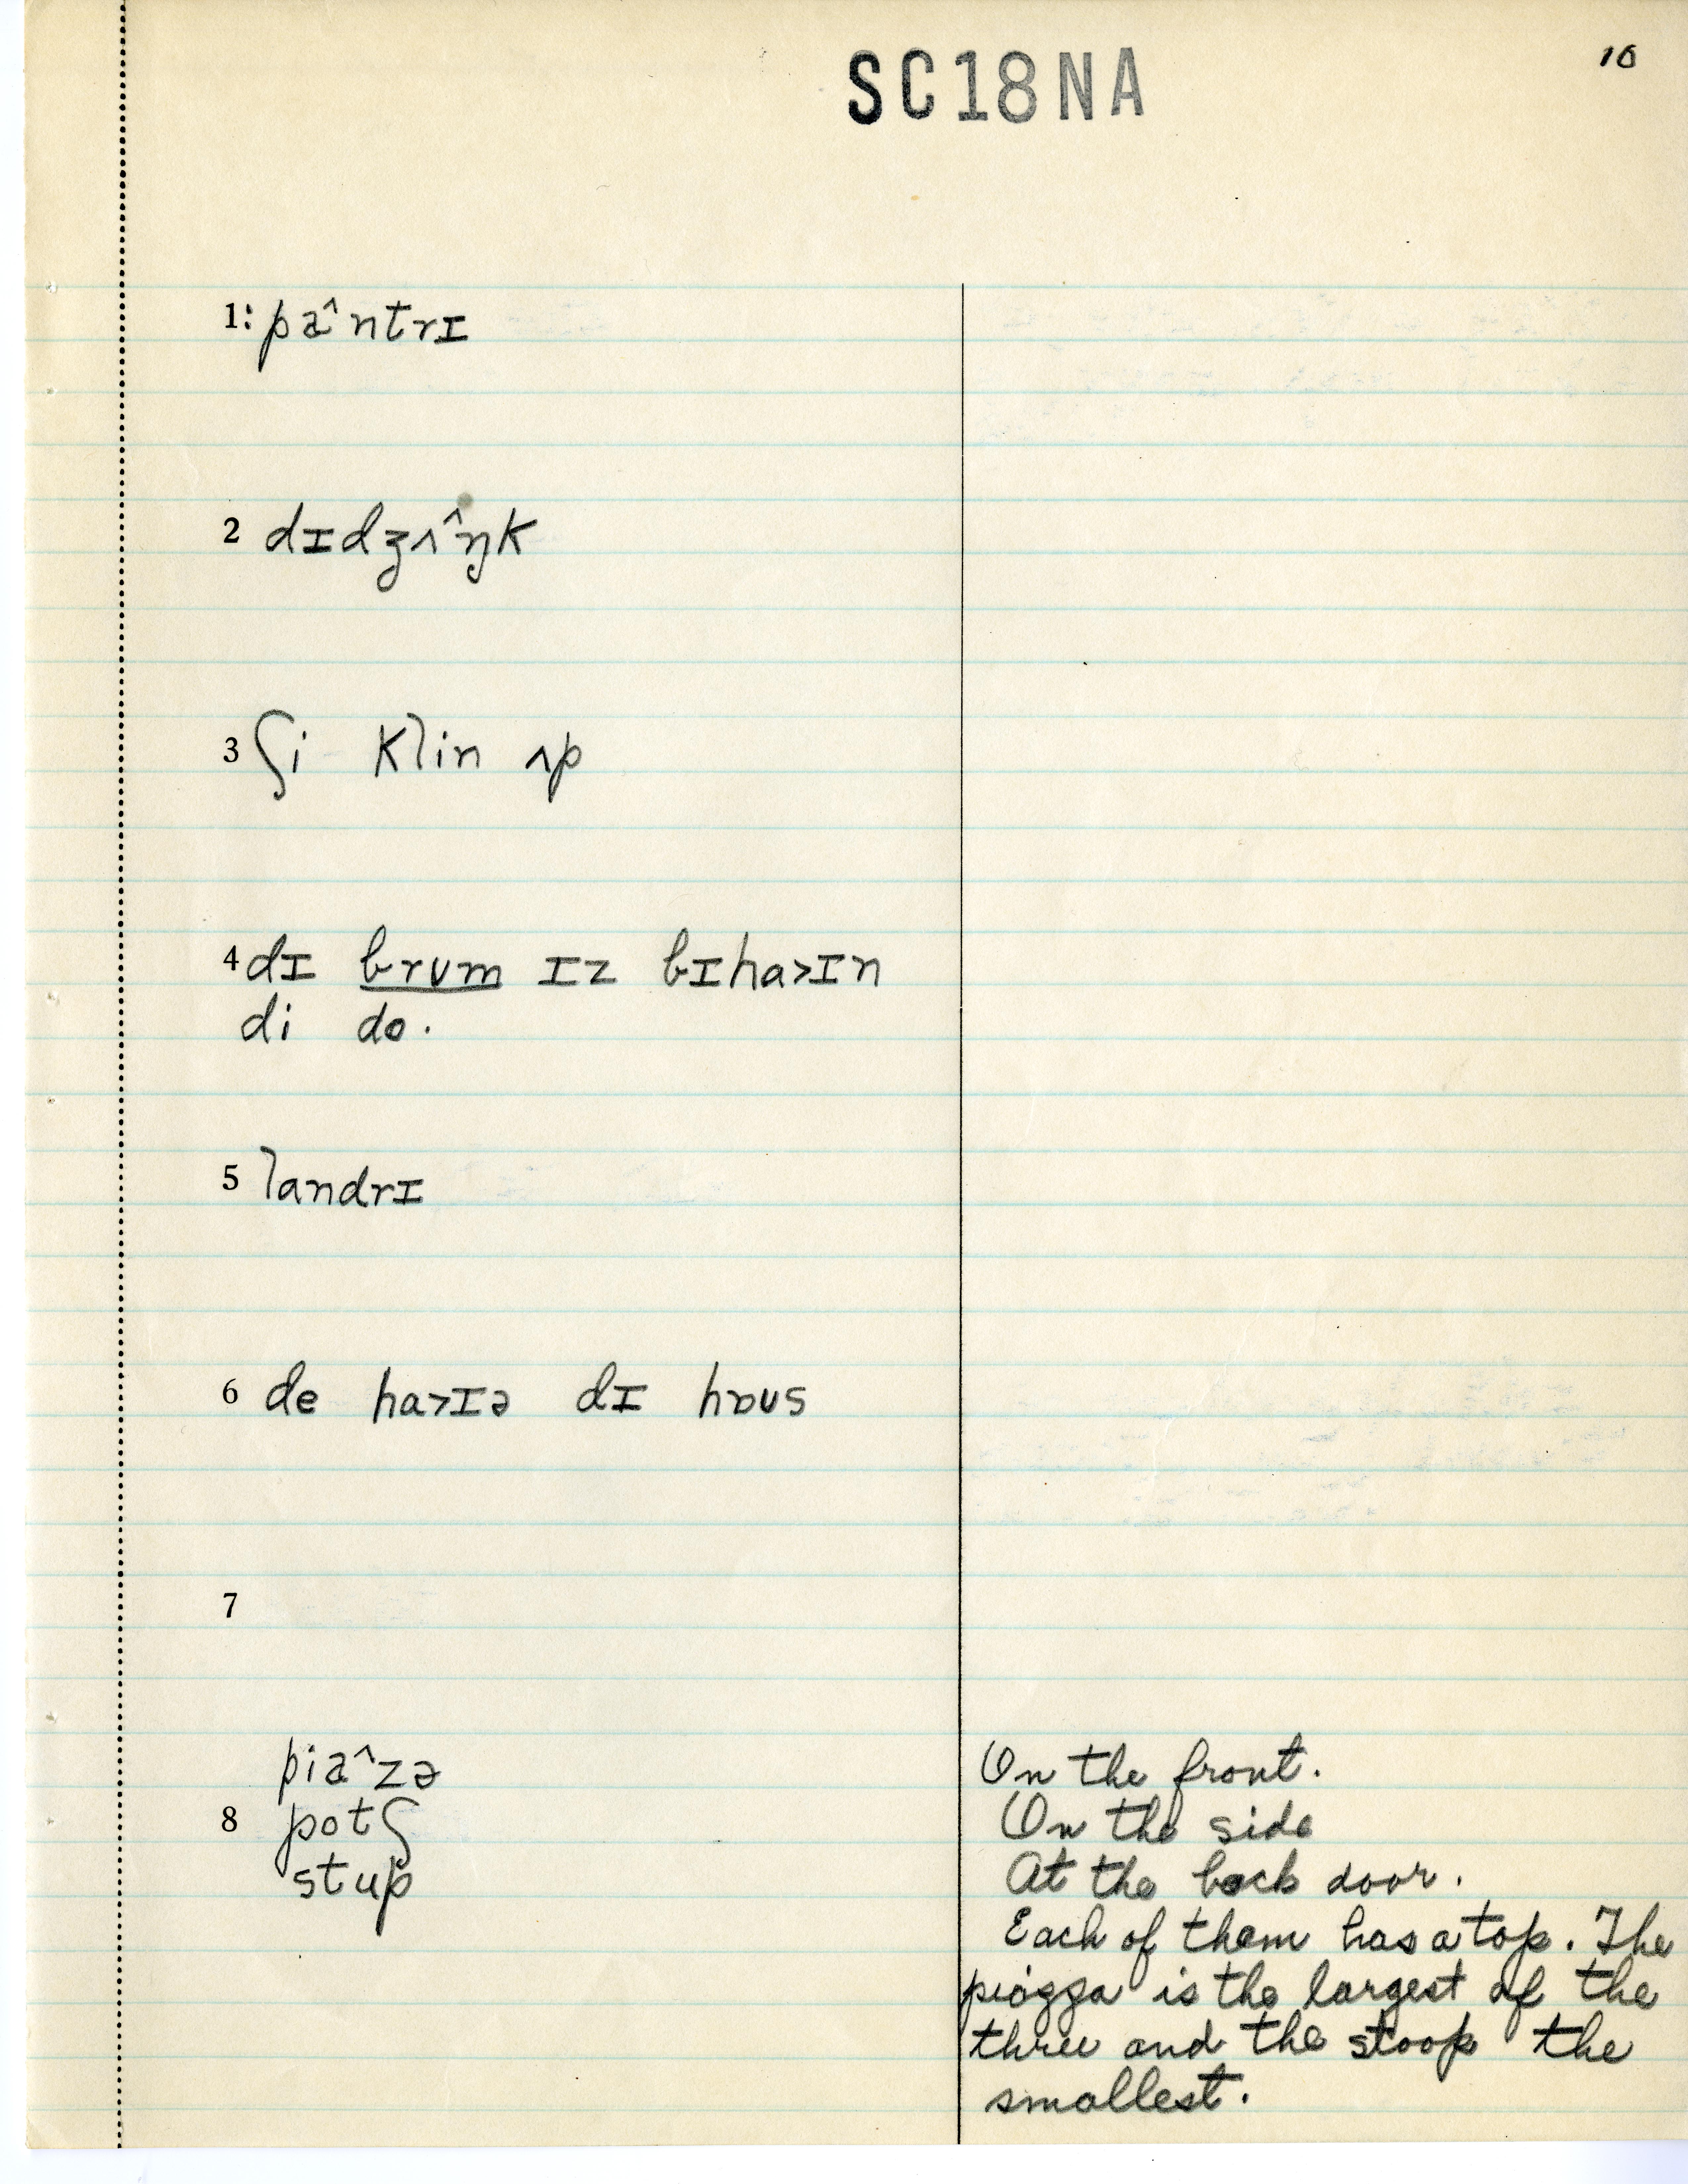 SC18NA
10
1: pa^ntrɪ
2 dɪdʒʌ^ŋk
3 ʃi klin ʌp
4 dɪ brʊm ɪz bɪha>ɪn
di do.
5 landrɪ
6 de ha>ɪə dɪ hɒʊs
7
pia^zə On the front.
8 potʃ On the side
stup At the back door.
Each of them has a top. The
piazza is the largest of the
three and the stoop the
smallest.